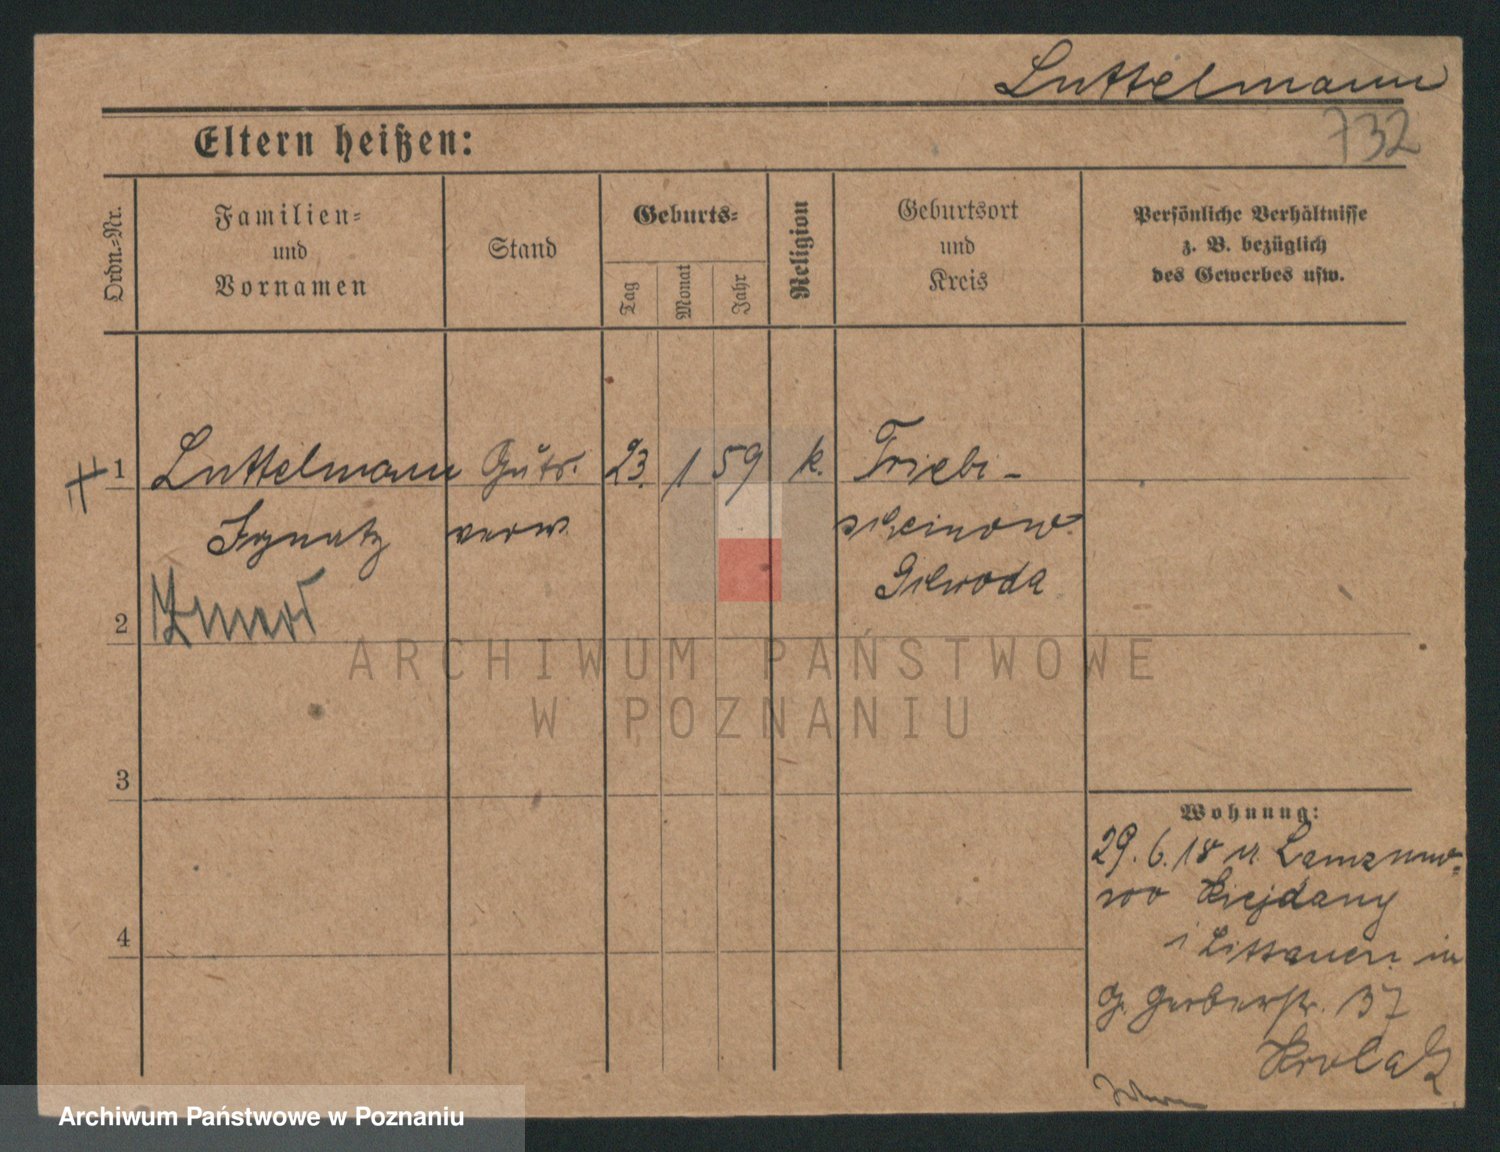 Luttelmann
732
Eltern heißen:
Ordn.-Nr.
Familien-
und
Vornamen
Stand
Geburts-
Tag
Monat
Jahr
Religion
Geburtsort
und
Kreis
Persönliche Verhältnisse
z. B. bezüglich
des Gewerbes usw.
1 Luttelmann Guts- 23. 1 59 k. Triebi-
Ignatz verw.
Schroda
2
ARCHIWUM PAŃSTWOWE
W POZNANIU
3
Wohnung:
29. 6. 18 v.
Kiejdany
i Littauen in
G. Gerberstr. 37
4
Archiwum Państwowe w Poznaniu